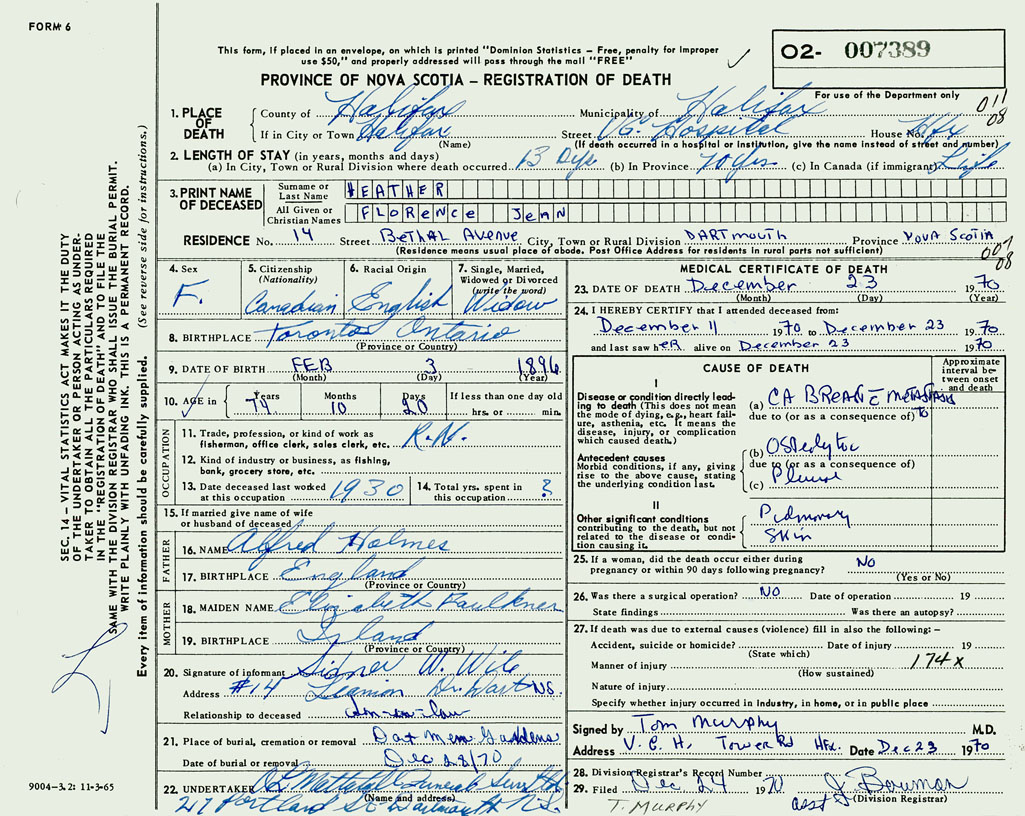 FORM 6
This form, if placed in an envelope, on which is printed "Dominion Statistics – Free, penalty for improper
use $50," and properly addressed will pass through the mail "FREE"
PROVINCE OF NOVA SCOTIA – REGISTRATION OF DEATH
02- 007389
For use of the Department only
011
08
1. PLACE OF DEATH
County of Halifax Municipality of Halifax
If in City or Town Halifax Street VG. Hospital House No. Hfx
(Name) (If death occurred in a hospital or institution, give the name instead of street and number)
2. LENGTH OF STAY (in years, months and days)
(a) In City, Town or Rural Division where death occurred 13 Dys (b) In Province 70 yrs (c) In Canada (if immigrant) Life
3. PRINT NAME OF DECEASED
Surname or Last Name HEATHER
All Given or Christian Names FLORENCE JEAN
RESIDENCE No. 14 Street BETHAL AVENUE City, Town or Rural Division DARTMOUTH Province NOVA SCOTIA
(Residence means usual place of abode. Post Office Address for residents in rural parts not sufficient)
007
08
4. Sex F.
5. Citizenship (Nationality) Canadian
6. Racial Origin English
7. Single, Married, Widowed or Divorced (write the word) Widow
8. BIRTHPLACE Toronto Ontario
(Province or Country)
9. DATE OF BIRTH FEB 3 1896
(Month) (Day) (Year)
10. AGE in Years 74 Months 10 Days 20 If less than one day old hrs. or min.
OCCUPATION
11. Trade, profession, or kind of work as fisherman, office clerk, sales clerk, etc. R.N.
12. Kind of industry or business, as fishing, bank, grocery store, etc.
13. Date deceased last worked at this occupation 1930
14. Total yrs. spent in this occupation ?
15. If married give name of wife or husband of deceased
FATHER
16. NAME Alfred Holmes
17. BIRTHPLACE England
(Province or Country)
MOTHER
18. MAIDEN NAME Elizabeth Faulkner
19. BIRTHPLACE Irland
(Province or Country)
20. Signature of informant Sidney W. Wile
Address #14 Dr. Dart NS.
Relationship to deceased Son-in-law
21. Place of burial, cremation or removal Dat Mem Gardens
Date of burial or removal Dec 28/70
22. UNDERTAKER Mattatall Funeral
(Name and address)
217 Portland St Dartmouth N.S.
MEDICAL CERTIFICATE OF DEATH
23. DATE OF DEATH December 23 1970
(Month) (Day) (Year)
24. I HEREBY CERTIFY that I attended deceased from:
December 11 1970 to December 23 1970
and last saw hER alive on December 23 1970
CAUSE OF DEATH
Approximate interval between onset and death
I
Disease or condition directly leading to death (This does not mean the mode of dying, e.g., heart failure, asthenia, etc. It means the disease, injury, or complication which caused death.)
(a) CA BREAST METASTASIS
due to (or as a consequence of) to
Antecedent causes
Morbid conditions, if any, giving rise to the above cause, stating the underlying condition last.
(b) Osteolytic
due to (or as a consequence of)
(c) Pleural
II
Other significant conditions
contributing to the death, but not related to the disease or condition causing it.
Pulmonary
Skin
25. If a woman, did the death occur either during pregnancy or within 90 days following pregnancy? NO
(Yes or No)
26. Was there a surgical operation? NO Date of operation 19
State findings Was there an autopsy?
27. If death was due to external causes (violence) fill in also the following: –
Accident, suicide or homicide? Date of injury 19
(State which)
Manner of injury 174x
(How sustained)
Nature of injury
Specify whether injury occurred in industry, in home, or in public place
Signed by Tom Murphy M.D.
Address V.G.H. Tower Rd Hfx. Date Dec 23 1970
28. Division Registrar's Record Number
29. Filed Dec 24 1970 asst J. Bowman
(Division Registrar)
T. MURPHY
SEC. 14 – VITAL STATISTICS ACT MAKES IT THE DUTY
OF THE UNDERTAKER OR PERSON ACTING AS UNDER-
TAKER TO OBTAIN ALL THE PARTICULARS REQUIRED
IN THE "REGISTRATION OF DEATH" AND TO FILE THE
SAME WITH THE DIVISION REGISTRAR WHO SHALL ISSUE THE BURIAL PERMIT.
WRITE PLAINLY WITH UNFADING INK. THIS IS A PERMANENT RECORD.
Every item of information should be carefully supplied. (See reverse side for instructions.)
9004-3.2: 11-3-65